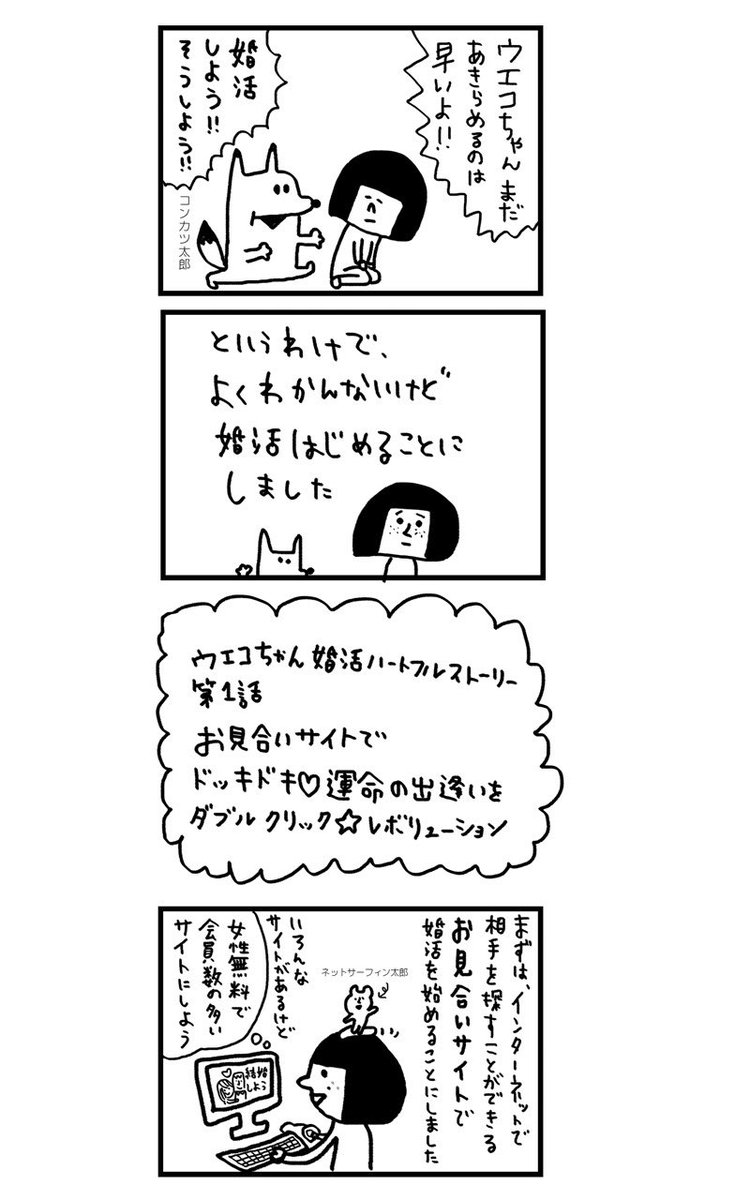 ウエコちゃん まだ
あきらめるのは
早いよ!!
婚活
しよう!!
そうしよう!!
コンカツ太郎
というわけで、
よくわかんないけど
婚活はじめることに
しました
ウエコちゃん 婚活ハートフルストーリー
第1話
お見合いサイトで
ドッキドキ♡運命の出逢いを
ダブルクリック☆レボリューション
まずは、インターネットで
相手を探すことができる
お見合いサイトで
婚活を始めることにしました
ネットサーフィン太郎
いろんな
サイトがあるけど
女性無料で
会員数の多い
サイトにしよう
結婚
しよう